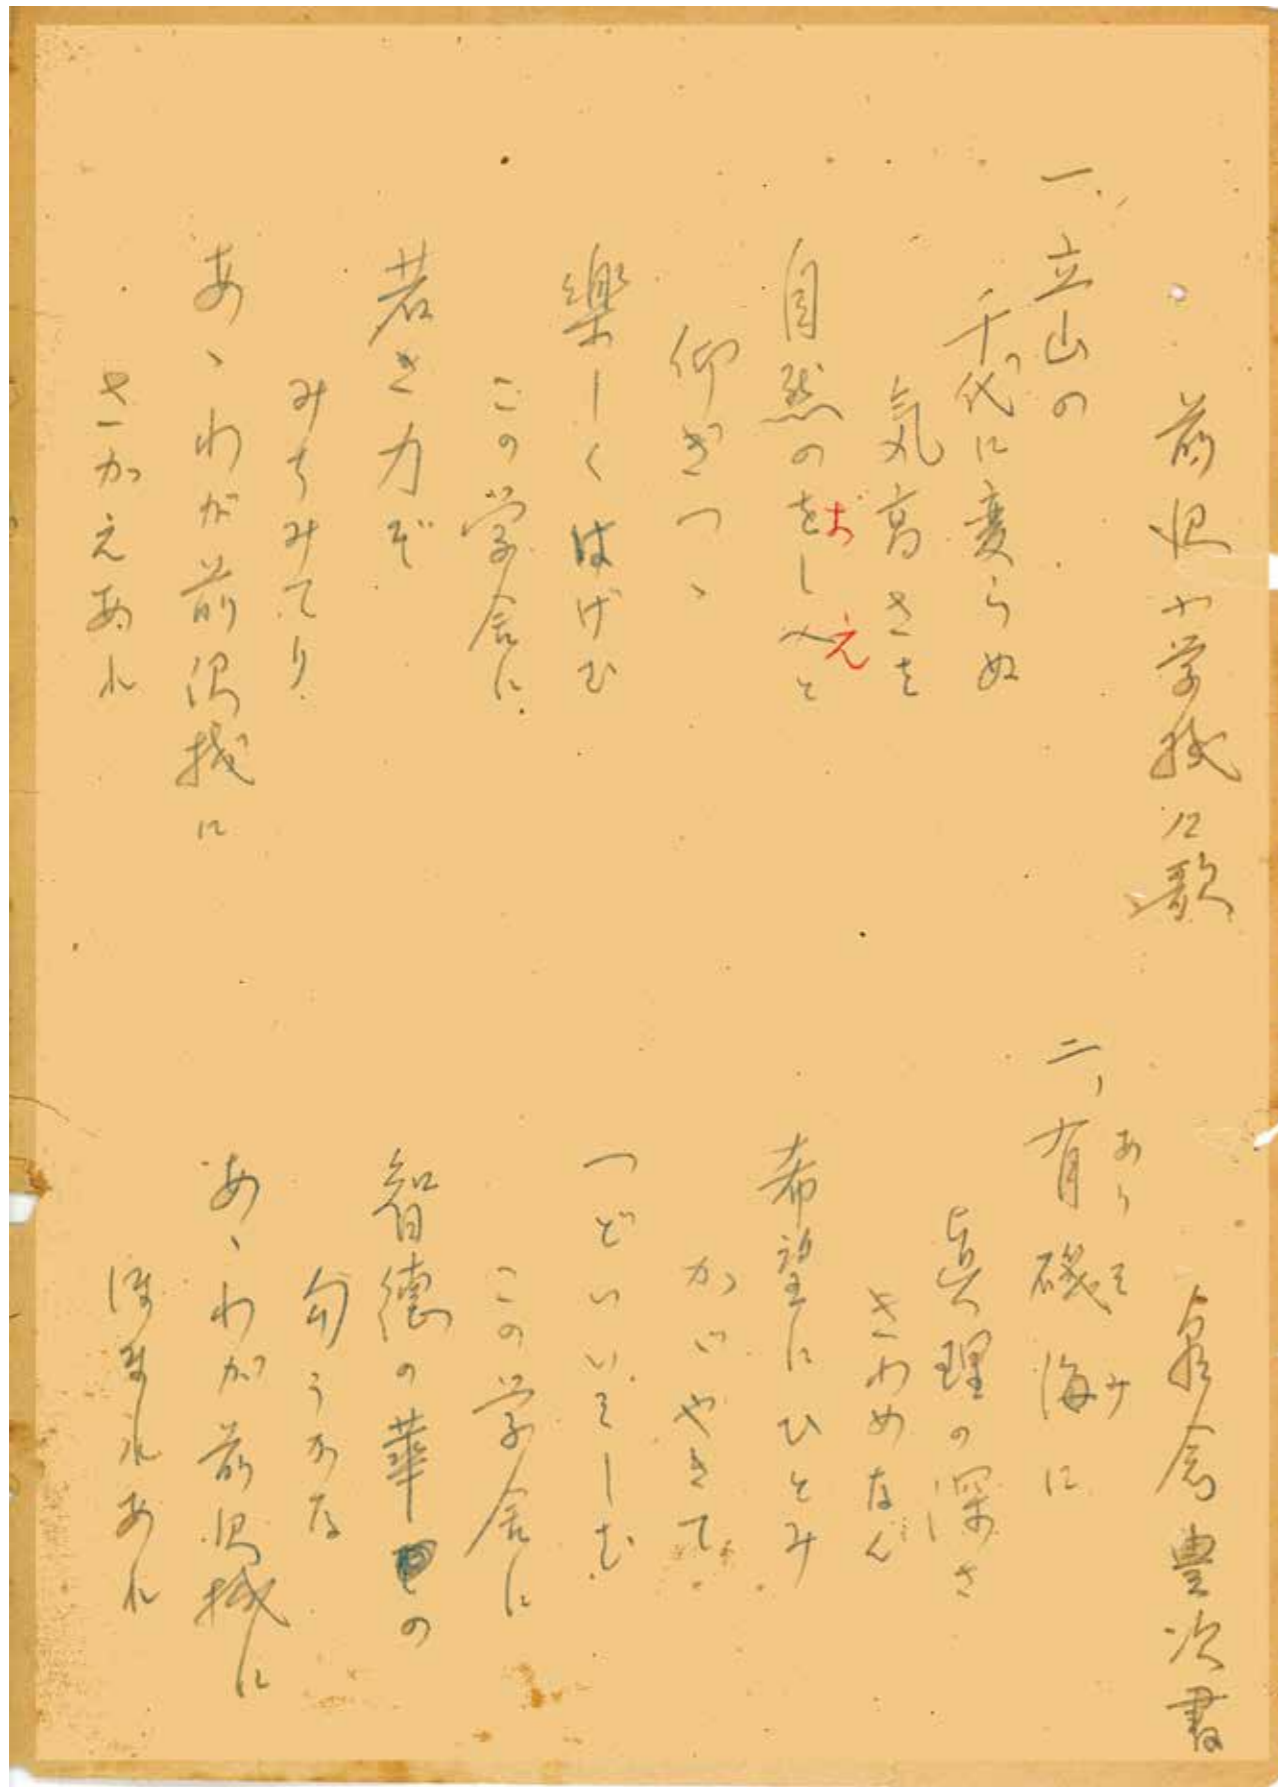 前沢小学校々歌
朝倉豊次書
一、立山の
千代に変らぬ
気高さを
自然のをしへと
おえ
仰ぎつゝ
樂しくはげむ
この学舎に
若き力ぞ
みちみてり
あゝわが前沢校に
さかえあれ
二、有磯海に
ありそみ
眞理の深さ
きわめなん
希望にひとみ
かゞやきて
つどいいそしむ
この学舎に
智德の華の
匂うかな
あゝわが前沢校に
ほまれあれ